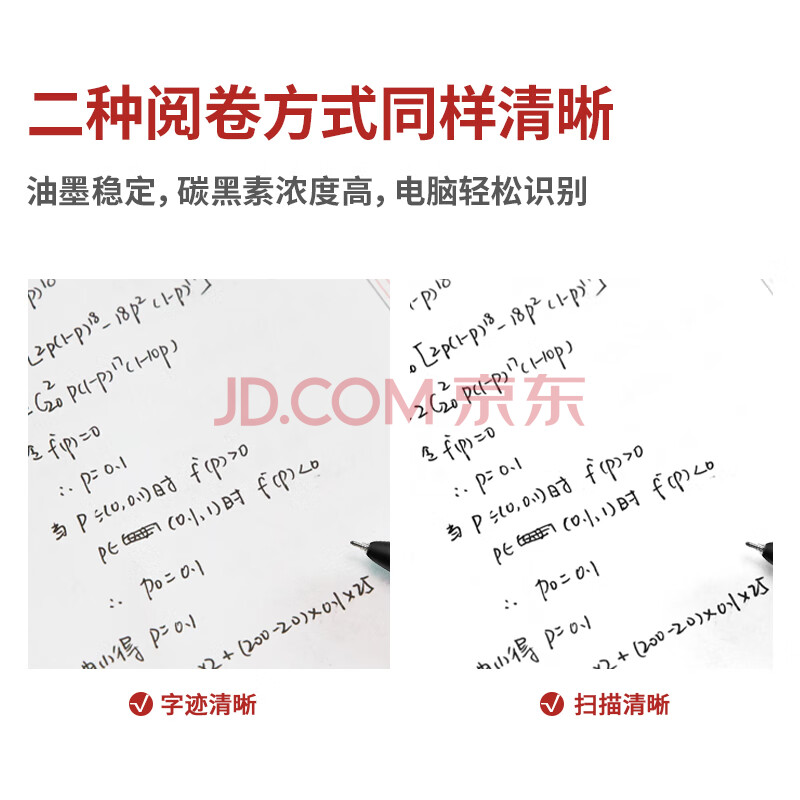 二种阅卷方式同样清晰
油墨稳定，碳黑素浓度高，电脑轻松识别
-p)¹⁰
[2p(1-p)¹⁸-18p²(1-p)¹⁷]
2C²₂₀ p(1-p)¹⁷(1-10p)
令f'(p)=0
∴ p=0.1
当 p=(0,0.1)时 f'(p)>0
p∈ (0.1,1)时 f'(p)<0
∴ p₀=0.1
得 p=0.1
×2+(200-20)×0.1×25
-p)¹⁰
[2p(1-p)¹⁸-18p²(1-p)¹⁷]
2C²₂₀ p(1-p)¹⁷(1-10p)
令f'(p)=0
∴ p=0.1
当 p=(0,0.1)时 f'(p)>0
p∈ (0.1,1)时 f'(p)<0
∴ p₀=0.1
得 p=0.1
×2+(200-20)×0.1×25
JD.COM 京东
字迹清晰
扫描清晰